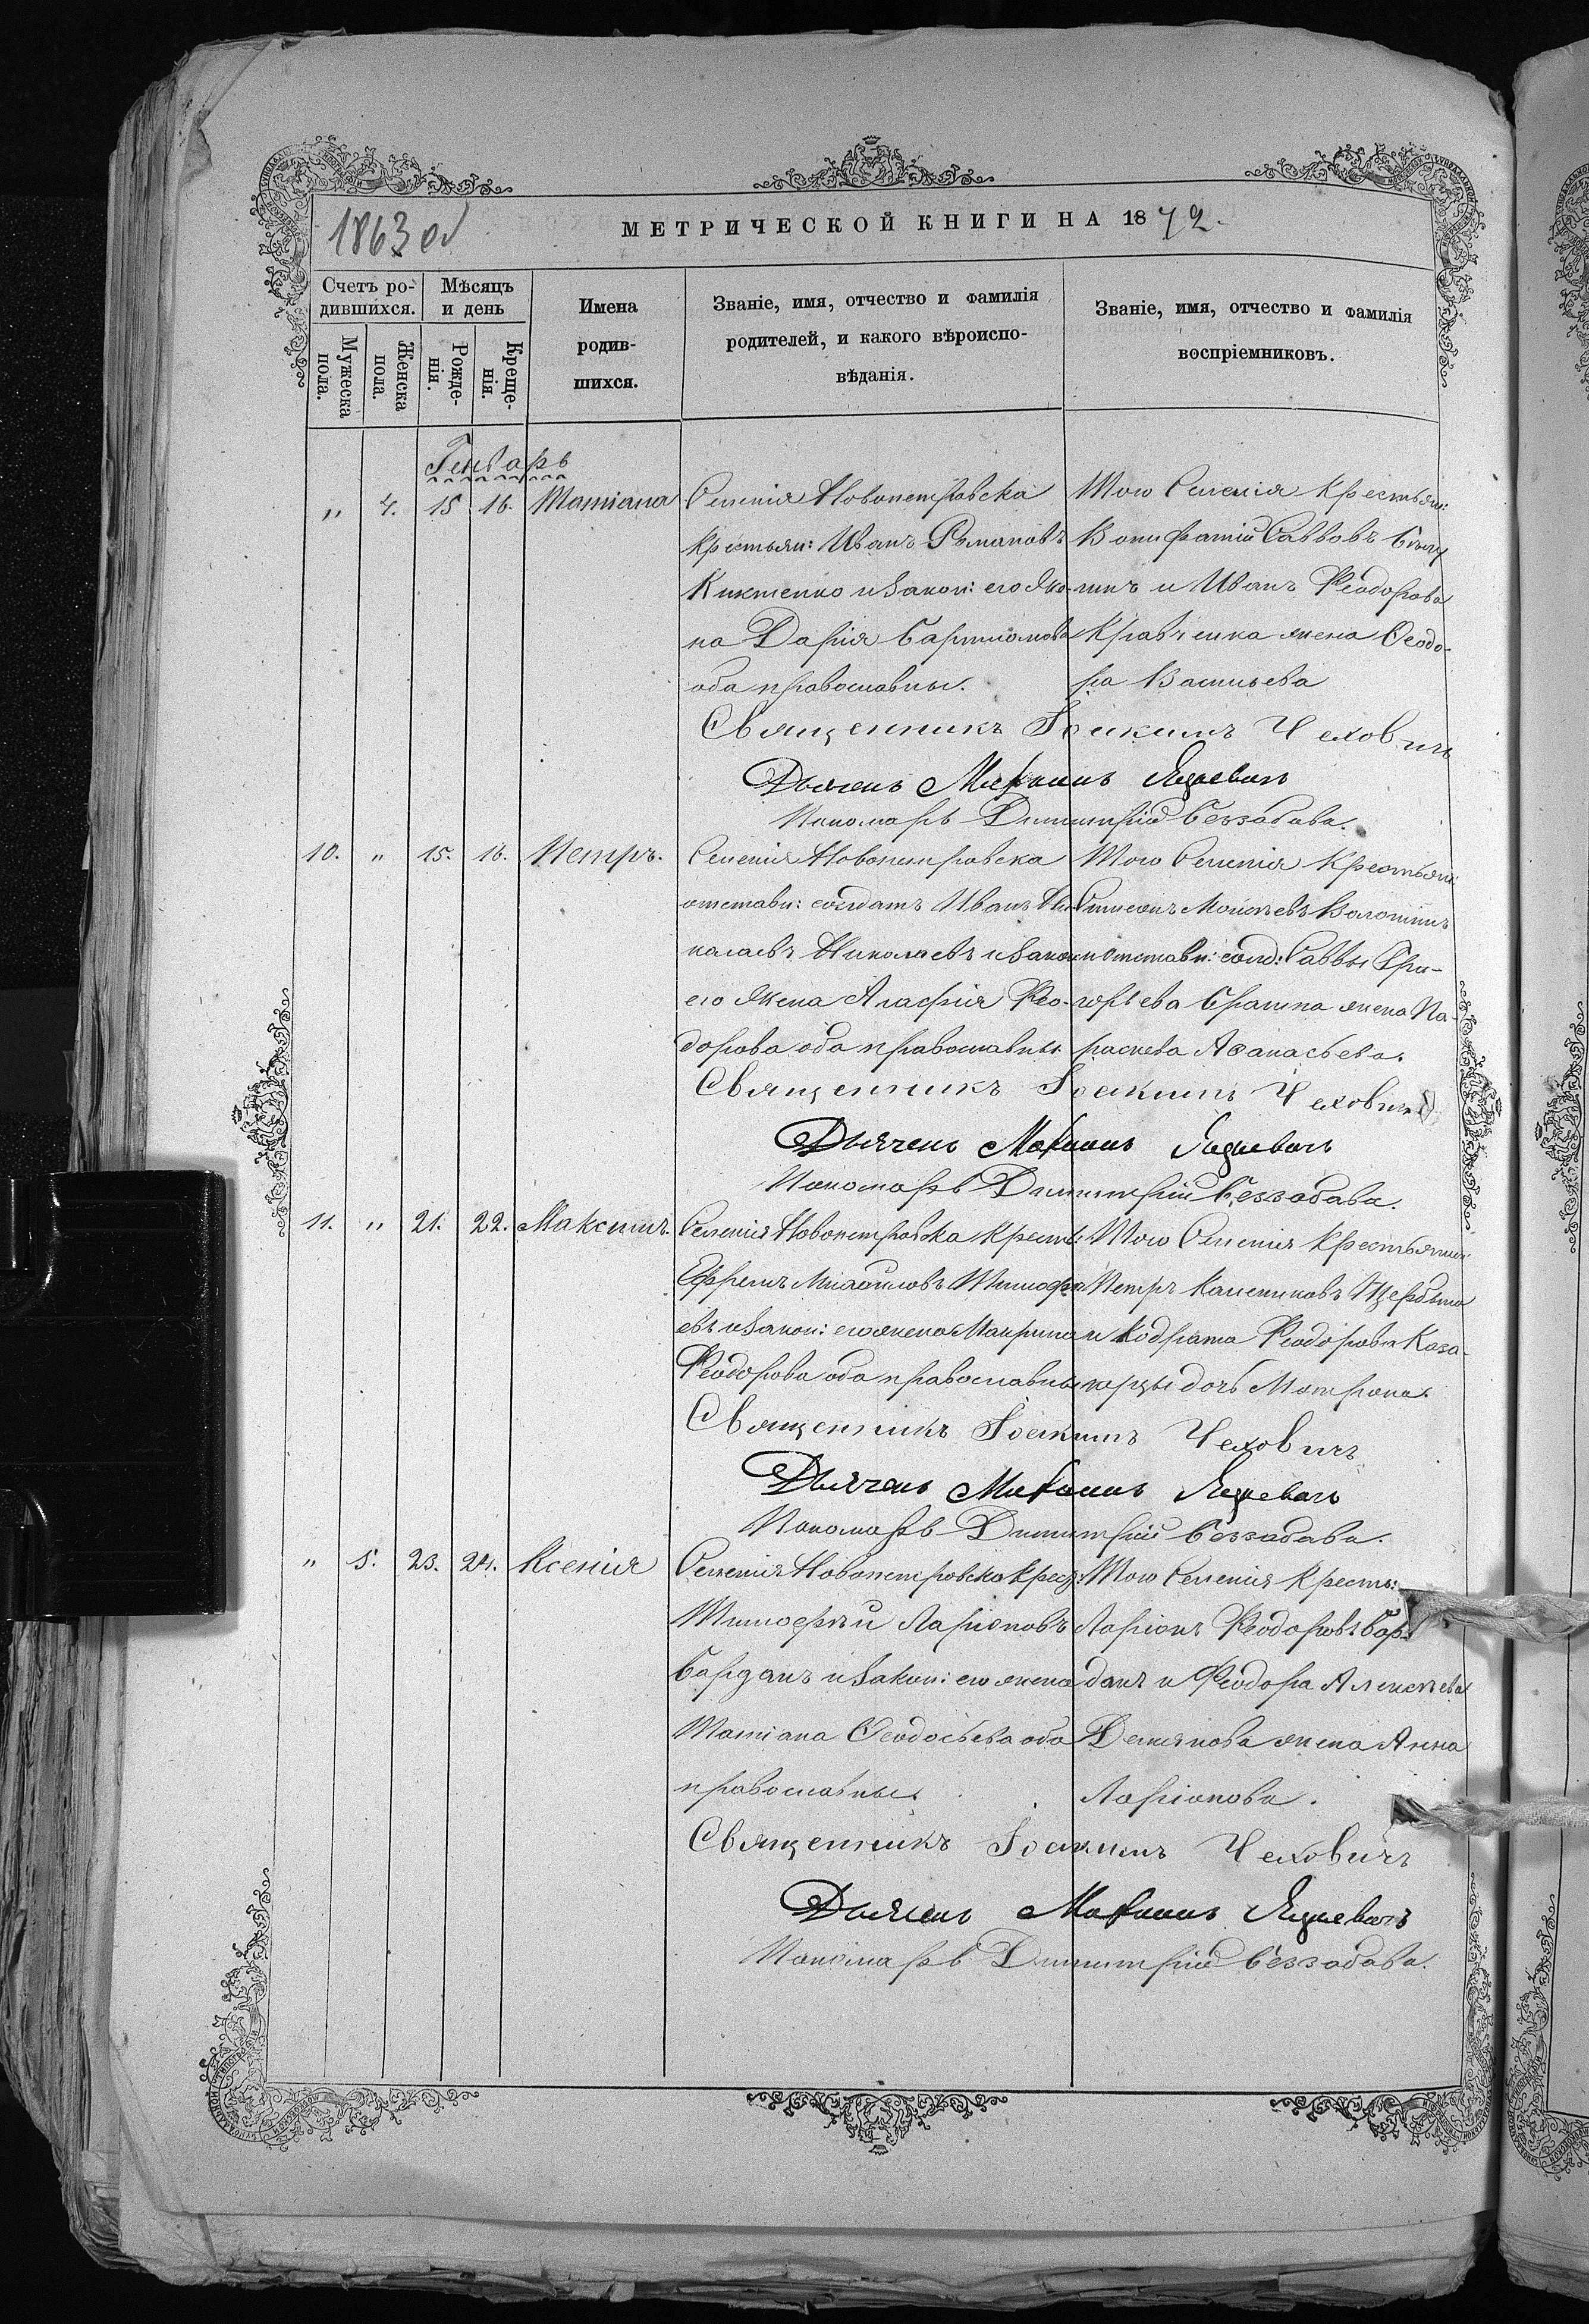 1863 об
МЕТРИЧЕСКОЙ КНИГИ НА 1872.
Счетъ ро-
дившихся.
Мѣсяцъ
и день
Мужеска
пола.
Женска
пола.
Рожде-
нія.
Креще-
нія.
Имена
родив-
шихся.
Званіе, имя, отчество и фамилія
родителей, и какого вѣроиспо-
вѣданія.
Званіе, имя, отчество и фамилія
воспріемниковъ.
Генварь
" 4. 15 16. Татіана
Селенія Новопетровска
крестьян: Иванъ Романовъ
Никтенко и закон: его же-
на Дарія
оба православные.
Того Селенія Крестьян:
Вонифатій Саввовъ
и Иванъ Феодорова
Кравченка жена Феодо-
ра Васильева
Священникъ Іоакимъ Чеховичъ
Дьячекъ Михаилъ
Пономарь Димитрій Беззабава.
10. " 15. 16. Петръ.
Селенія Новопетровска
отставн: солдатъ Иванъ Ни-
колаевъ Николаевъ и закон:
его жена Агафія Фео-
дорова оба православные
Того Селенія Крестьян:
Моисеевъ
и отставн: солд: Саввы Гри-
горьева жена Па-
раскева Афанасьева.
Священникъ Іоакимъ Чеховичъ
Дьячекъ Михаилъ
Пономарь Димитрій Беззабава.
11. " 21. 22. Максимъ.
Селенія Новопетровска Крестьян:
Ефремъ Михайловъ Тимофе-
евъ и закон: его жена Маврина
Феодорова оба православные
Того Селенія Крестьянин:
Петръ
и Кодрата Феодорова Каза-
дочь Матрона.
Священникъ Іоакимъ Чеховичъ
Дьячекъ Михаилъ
Пономарь Димитрій Беззабава.
" 5. 23. 24. Ксенія
Селенія Новопетровска Крест:
Тимофей Ларіоновъ
Барданъ и закон: его жена
Татіана Феодосьева оба
православные.
Того Селенія Крест:
Ларіонъ Феодоровъ Бар-
данъ и Феодора Алексеева
Демянова жена Анна
Ларіонова.
Священникъ Іоакимъ Чеховичъ
Дьячекъ Михаилъ
Пономарь Димитрій Беззабава.